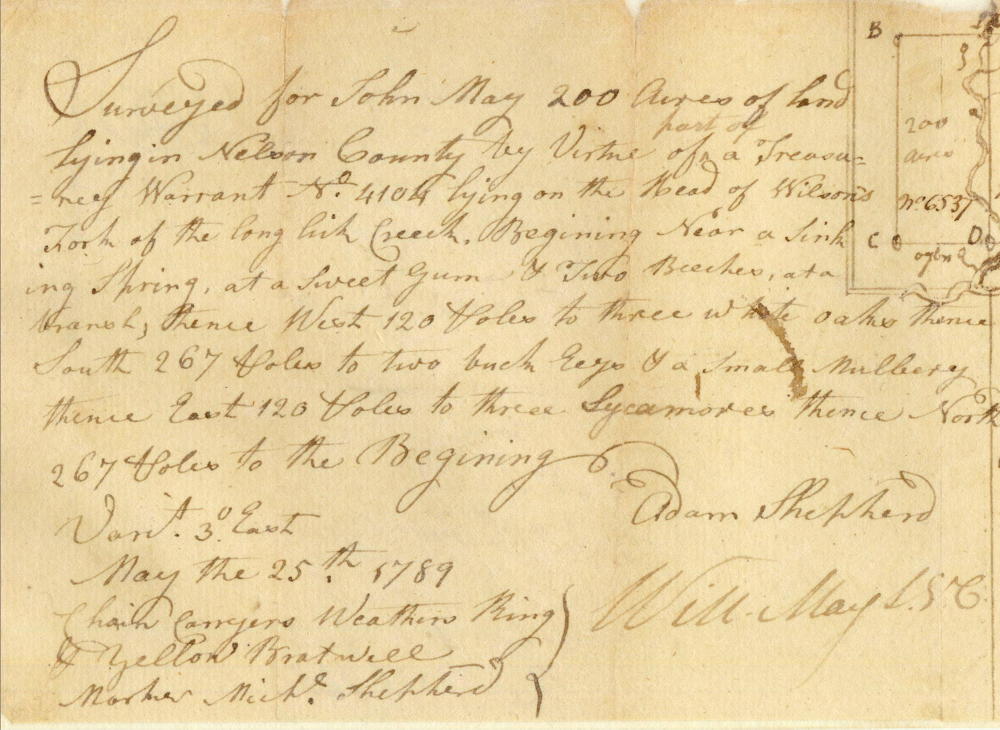 Surveyed for John May 200 Acres of land
part of
lying in Nelson County by Virtue of ^ a Treasu=
=rey Warrant No. 4104 lying on the Head of Wilson's
Fork of the long lick Creeck. Begining Near a Sink
ing Spring, at a Sweet Gum & Two Beeches, at a
bransh; thence West 120 Poles to three white oaks thence
South 267 Poles to two buck Eeys & a small Mulbery
thence East 120 Poles to three Sycamores thence North
267 Poles to the Begining
Adam Shepherd
Vari.t 3.° East
May the 25.th 1789
Will. May S.N.C.
Chain Carryers Weathers Ring
& Yellow Bratwell
Marker Mich.l Shepherd
B
200
acres
No. 6537
C
D